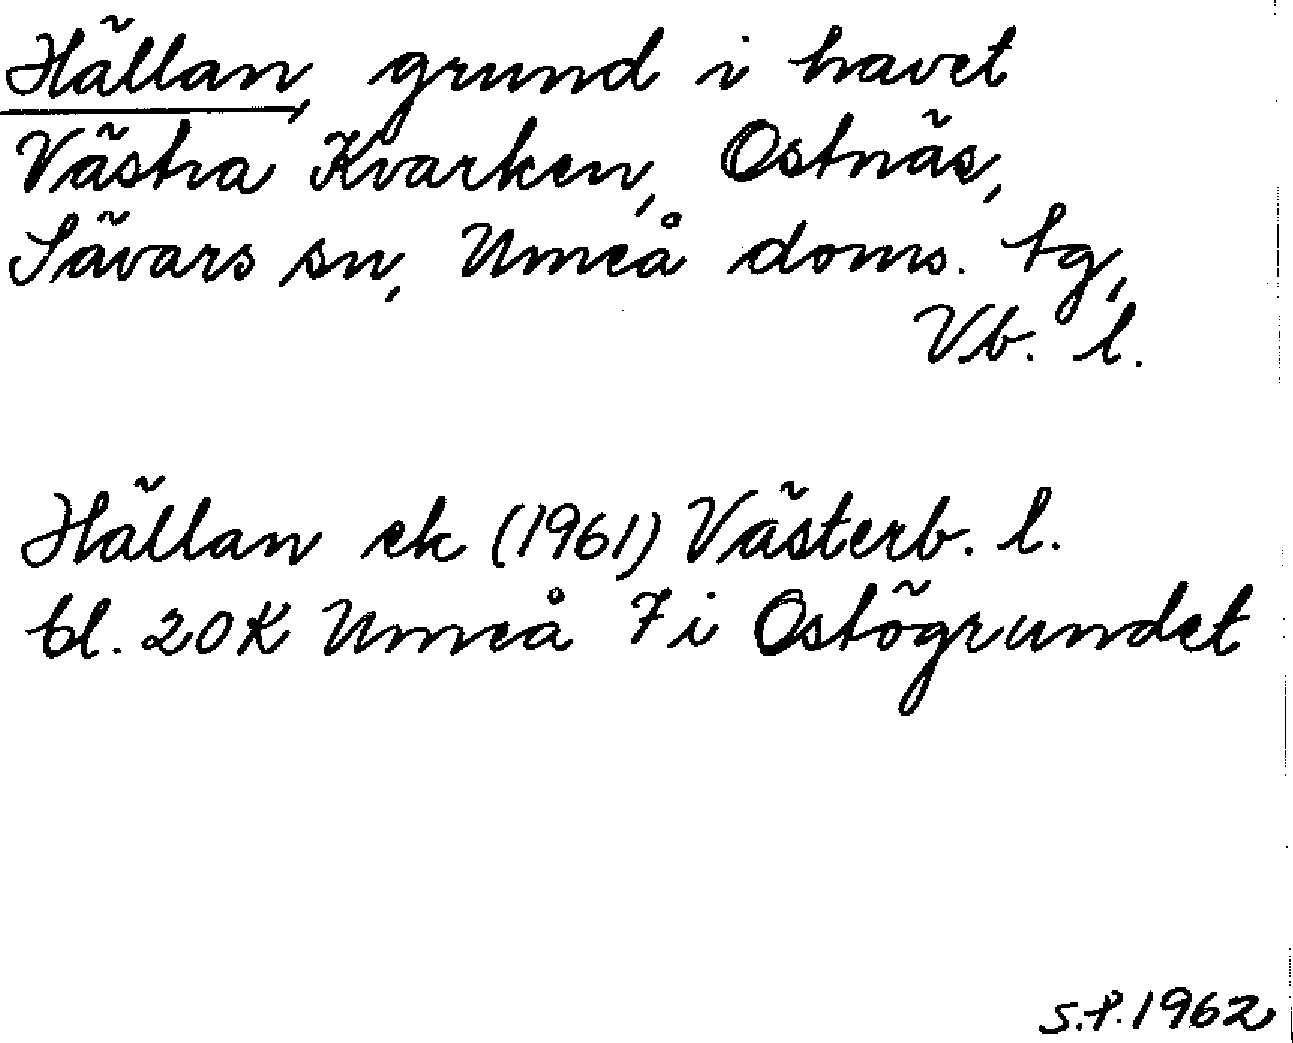 Hällan, grund i havet
Västra Kvarken, Ostnäs,
Sävars sn, Umeå doms. tg,
Vb. l.
Hällan ek (1961) Västerb. l.
bl. 20K Umeå 7i Ostögrundet
S.P. 1962